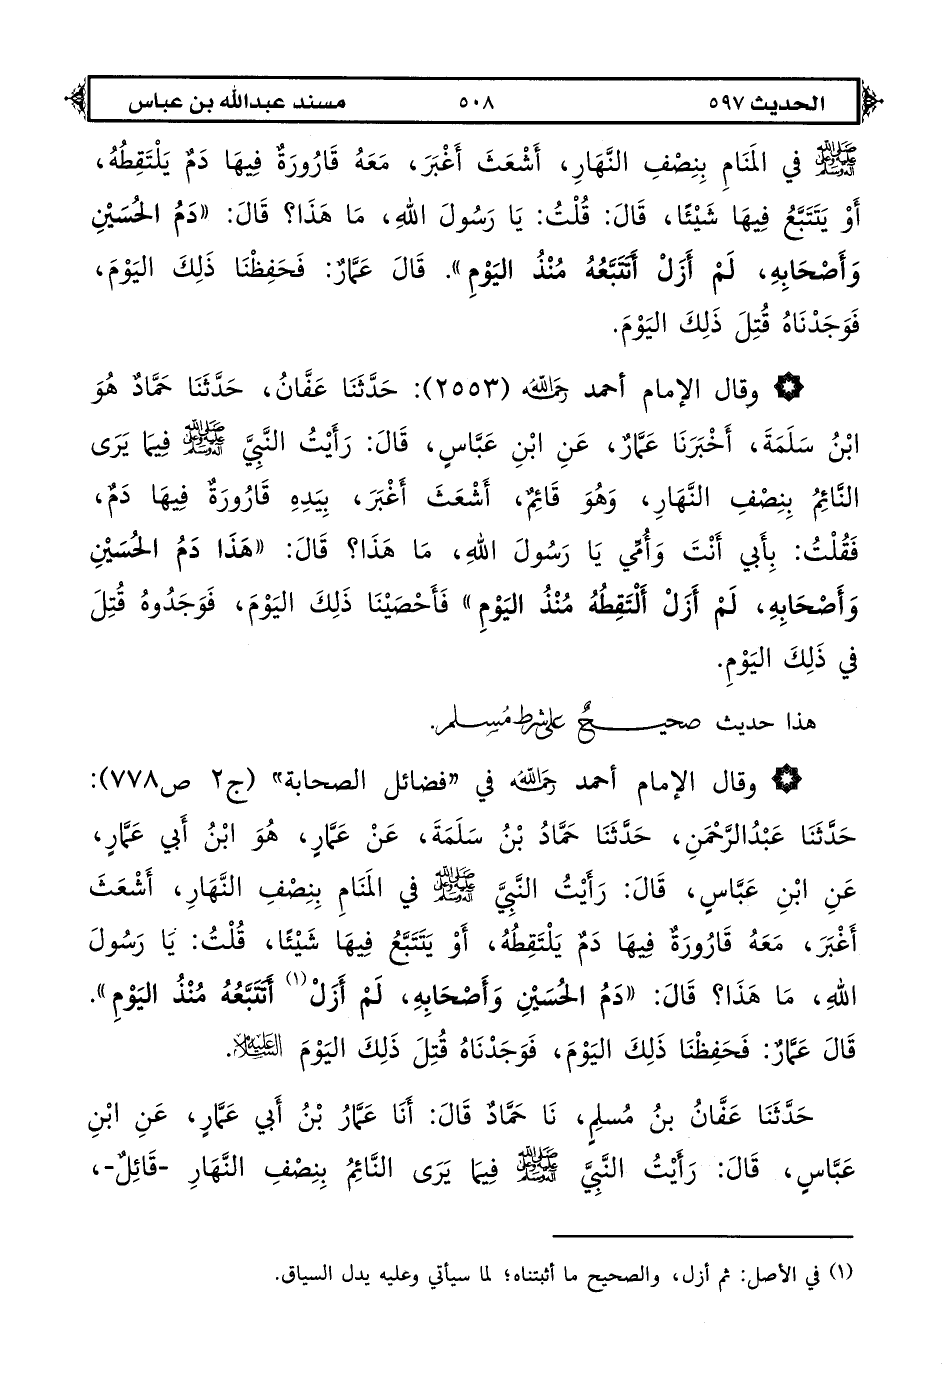 الحديث ٥٩٧ ٥٠٨ مسند عبدالله بن عباس
ﷺ في المَنَامِ بِنِصْفِ النَّهَارِ، أَشْعَثَ أَغْبَرَ، مَعَهُ قَارُورَةٌ فِيهَا دَمٌ يَلْتَقِطُهُ،
أَوْ يَتَتَبَّعُ فِيهَا شَيْئًا، قَالَ: قُلْتُ: يَا رَسُولَ اللهِ، مَا هَذَا؟ قَالَ: «دَمُ الحُسَيْنِ
وَأَصْحَابِهِ، لَمْ أَزَلْ أَتَتَبَّعُهُ مُنْذُ اليَوْمِ». قَالَ عَمَّارٌ: فَحَفِظْنَا ذَلِكَ اليَوْمَ،
فَوَجَدْنَاهُ قُتِلَ ذَلِكَ اليَوْمَ.
وقال الإمام أحمد رحمه الله (٢٥٥٣): حَدَّثَنَا عَفَّانُ، حَدَّثَنَا حَمَّادٌ هُوَ
ابْنُ سَلَمَةَ، أَخْبَرَنَا عَمَّارٌ، عَنِ ابْنِ عَبَّاسٍ، قَالَ: رَأَيْتُ النَّبِيَّ ﷺ فِيمَا يَرَى
النَّائِمُ بِنِصْفِ النَّهَارِ، وَهُوَ قَائِمٌ، أَشْعَثَ أَغْبَرَ، بِيَدِهِ قَارُورَةٌ فِيهَا دَمٌ،
فَقُلْتُ: بِأَبي أَنْتَ وَأُمِّي يَا رَسُولَ اللهِ، مَا هَذَا؟ قَالَ: «هَذَا دَمُ الحُسَيْنِ
وَأَصْحَابِهِ، لَمْ أَزَلْ أَلْتَقِطُهُ مُنْذُ اليَوْمِ» فَأَحْصَيْنَا ذَلِكَ اليَوْمَ، فَوَجَدُوهُ قُتِلَ
في ذَلِكَ اليَوْمِ.
هذا حديث صحيحٌ على شرط مُسلم.
وقال الإمام أحمد رحمه الله في «فضائل الصحابة» (ج٢ ص٧٧٨):
حَدَّثَنَا عَبْدُالرَّحْمَنِ، حَدَّثَنَا حَمَّادُ بْنُ سَلَمَةَ، عَنْ عَمَّارٍ، هُوَ ابْنُ أَبي عَمَّارٍ،
عَنِ ابْنِ عَبَّاسٍ، قَالَ: رَأَيْتُ النَّبِيَّ ﷺ في المَنَامِ بِنِصْفِ النَّهَارِ، أَشْعَثَ
أَغْبَرَ، مَعَهُ قَارُورَةٌ فِيهَا دَمٌ يَلْتَقِطُهُ، أَوْ يَتَتَبَّعُ فِيهَا شَيْئًا، قُلْتُ: يَا رَسُولَ
اللهِ، مَا هَذَا؟ قَالَ: «دَمُ الحُسَيْنِ وَأَصْحَابِهِ، لَمْ أَزَلْ(١) أَتَتَبَّعُهُ مُنْذُ اليَوْمِ».
قَالَ عَمَّارٌ: فَحَفِظْنَا ذَلِكَ اليَوْمَ، فَوَجَدْنَاهُ قُتِلَ ذَلِكَ اليَوْمَ عليه السلام.
حَدَّثَنَا عَفَّانُ بنُ مُسلِمٍ، نَا حَمَّادٌ قَالَ: أَنَا عَمَّارُ بْنُ أَبي عَمَّارٍ، عَنِ ابْنِ
عَبَّاسٍ، قَالَ: رَأَيْتُ النَّبِيَّ ﷺ فِيمَا يَرَى النَّائِمُ بِنِصْفِ النَّهَارِ -قَائِلٌ-،
(١) في الأصل: ثم أزل، والصحيح ما أثبتناه؛ لما سيأتي وعليه يدل السياق.